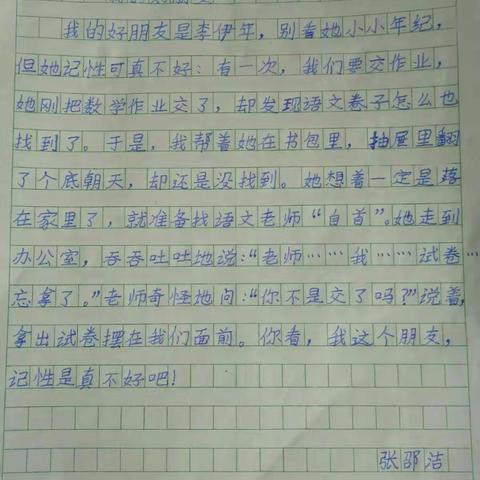 我的好朋友是李伊年，别看她小小年纪，
但她记性可真不好：有一次，我们要交作业，
她刚把数学作业交了，却发现语文卷子怎么也
找到了。于是，我帮着她在书包里，抽屉里翻
了个底朝天，却还是没找到。她想着一定是落
在家里了，就准备找语文老师“自首”。她走到
办公室，吞吞吐吐地说：“老师……我……试卷…
忘拿了。”老师奇怪地问：“你不是交了吗？”说着，
拿出试卷摆在我们面前。你看，我这个朋友，
记性是真不好吧！
张邵洁